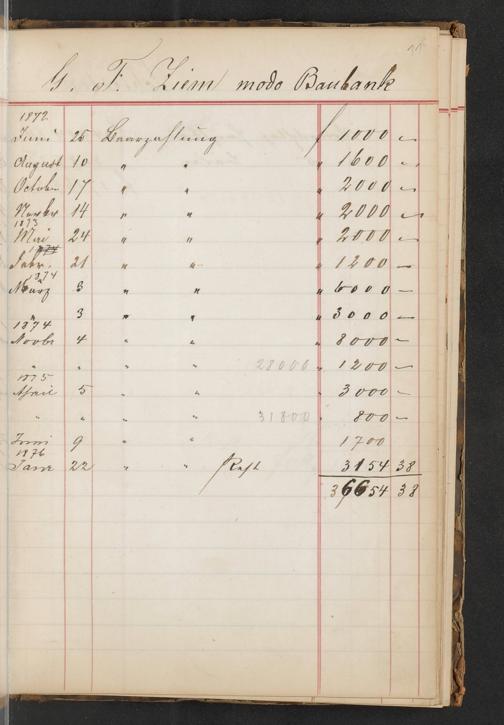 G. F. Ziem modo Baubank
1872
Juni 25 Baarzahlung f 1000 —
August 10 " " " 1600 —
October 17 " " " 2000 —
Novbr 14 " " " 2000 —
1873
Mai 24 " " " 2000 —
1874
Febr. 21 " " " 1200 —
1874
März 3 " " " 6000 —
" 3 " " " 3000 —
1874
Novbr 4 " " " 8000 —
" " " " 28000 " 1200 —
1875
April 5 " " " 3000 —
" " " " 31800 " 800 —
Juni 9 " " 1700
1876
Janr 22 " " Rest 3154 38
36654 38